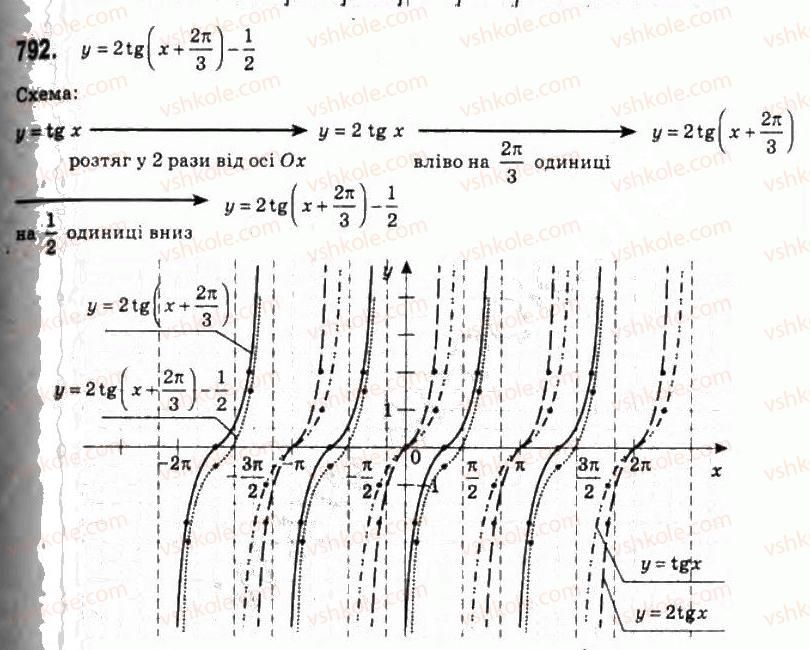 792. y = 2tg(x + 2π/3) − 1/2
Схема:
y = tg x → y = 2 tg x → y = 2tg(x + 2π/3)
розтяг у 2 рази від осі Ox вліво на 2π/3 одиниці
→ y = 2tg(x + 2π/3) − 1/2
на 1/2 одиниці вниз
y
y = 2tg(x + 2π/3)
y = 2tg(x + 2π/3) − 1/2
1
−2π −3π/2 −π −π/2 0 π/2 π 3π/2 2π x
−1
y = tgx
y = 2tgx
vshkole.com